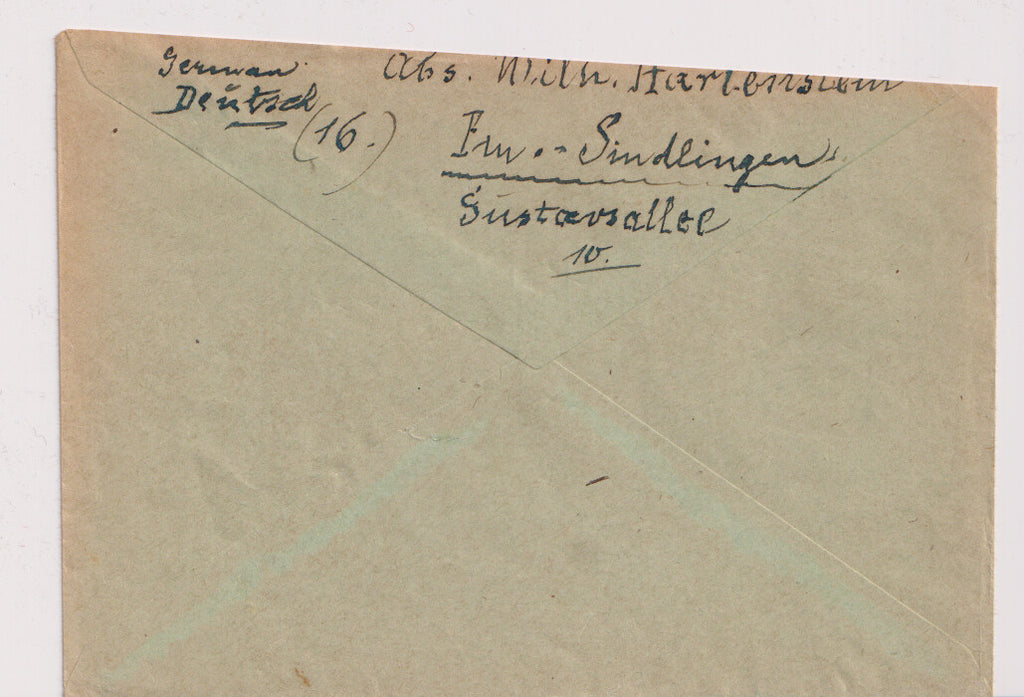 German
Deutsch
(16.)
Abs. Wilh. Hartenstein
Ffm. - Sindlingen
Gustavsallee
10.